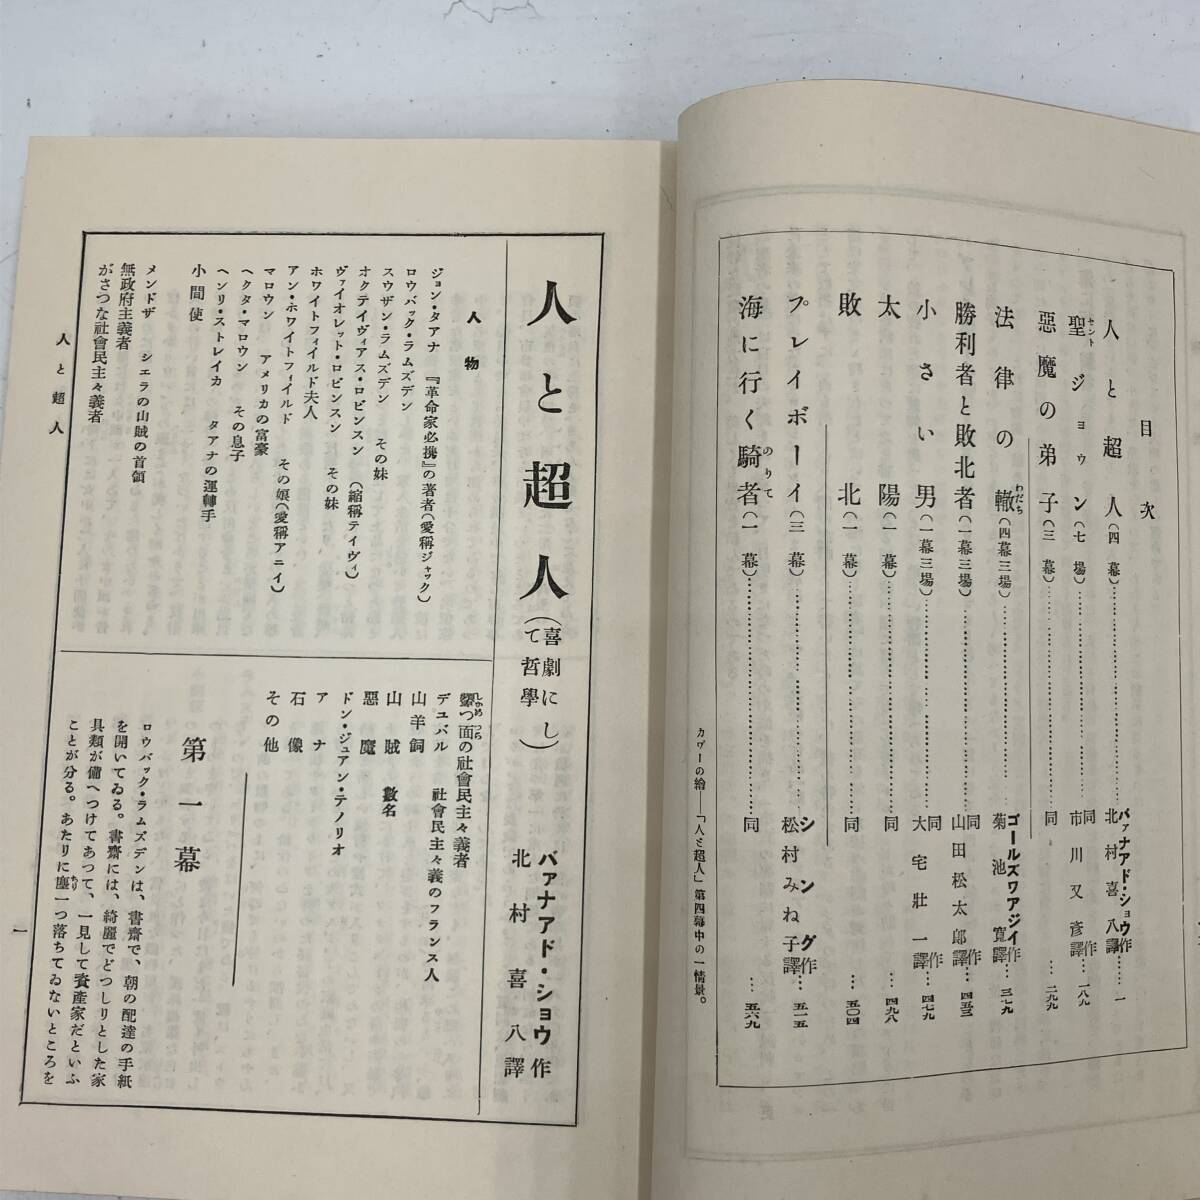 目次
人と超人（四幕）……バァナアド・ショウ作 北村喜八譯……一
聖ジョウン（七場）……同作 市川又彥譯……一八九
セント
惡魔の弟子（三幕）……同……二九九
法律の轍（四幕三場）……ゴールズワアジイ作 菊池寬譯……三七九
わだち
勝利者と敗北者（一幕三場）……同作 山田松太郎譯……四五三
小さい男（一幕三場）……同作 大宅壯一譯……四七九
太陽（一幕）……同……四九八
敗北（一幕）……同……五〇四
プレイボーイ（三幕）……シング作 松村みね子譯……五一五
海に行く騎者（一幕）……同……五六九
のりて
カヴーの繪——「人と超人」第四幕中の一情景。
人と超人（喜劇にして哲學）
バァナアド・ショウ作
北村喜八譯
人物
ジョン・タアナ 『革命家必携』の著者（愛稱ジャック）
ロウバック・ラムズデン
スウザン・ラムズデン その妹
オクテイヴィアス・ロビンスン（縮稱テイヴィ）
ヴァイオレット・ロビンスン その妹
ホワイトフィイルド夫人
アン・ホワイトフィイルド その娘（愛稱アニイ）
マロウン アメリカの富豪
ヘクタ・マロウン その息子
ヘンリ・ストレイカ タアナの運轉手
小間使
メンドザ シエラの山賊の首領
無政府主義者
がさつな社會民主々義者
顰つ面の社會民主々義者
しかめ つら
デュバル 社會民主々義のフランス人
山羊飼
山賊 數名
惡魔
ドン・ジュアン・テノリオ
アナ
石像
その他
第一幕
ロウバック・ラムズデンは、書齋で、朝の配達の手紙
を開いてゐる。書齋には、綺麗でどつしりとした家
具類が備へつけてあつて、一見して資產家だといふ
ことが分る。あたりに塵一つ落ちてゐないところを
ちり
人と超人
一